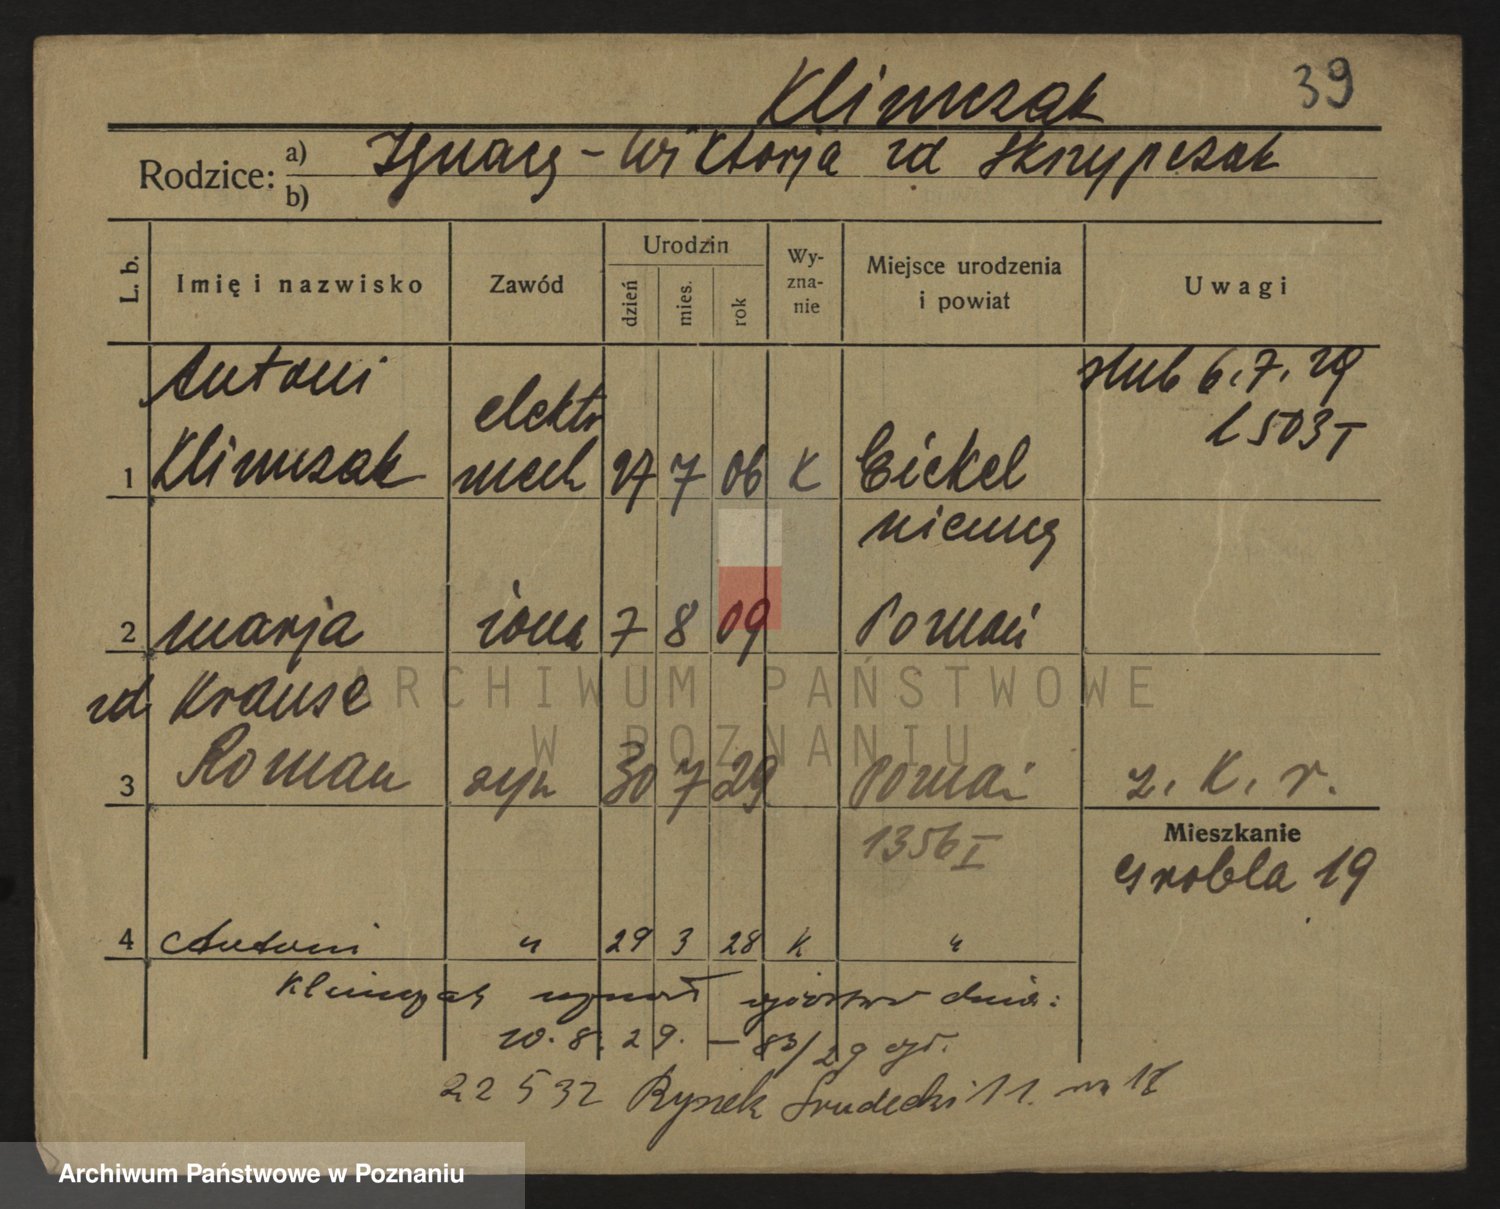 Klimczak
39
Rodzice: a) Ignacy - Wiktorja zd Skrzypczak
b)
L. b.
Imię i nazwisko
Zawód
Urodzin
dzień
mies.
rok
Wy-
zna-
nie
Miejsce urodzenia
i powiat
Uwagi
Antoni
ślub 6.7.29
elektr
1503 I
1 Klimczak mech 27 7 06 K Eickel
niemcy
2 Marja żona 7 8 09 Poznań
zd Krause
3 Roman syn 30 7 29 Poznań z. K. r.
1356 I
Mieszkanie
Grobla 19
4 Antoni " 29 3 28 K "
Klimczak uznał ojcostwo dnia:
10.8.29. - 83/29
22 5 32 Rynek Śródecki 11. m 17
ARCHIWUM PAŃSTWOWE
W POZNANIU
Archiwum Państwowe w Poznaniu